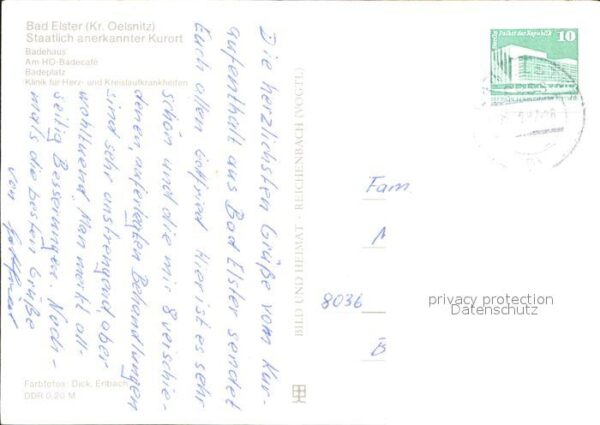 Bad Elster (Kr. Oelsnitz)
Staatlich anerkannter Kurort
Badehaus
Am HO-Badecafé
Badeplatz
Klinik für Herz- und Kreislaufkrankheiten
Die herzlichsten Grüße vom Kur-
aufenthalt aus Bad Elster sendet
Euch allen Gottfried. Hier ist es sehr
schön und die mir 8 verschie-
denen, auferlegten Behandlungen
sind sehr anstrengend aber
wohltuend. Man merkt all-
seitig Besserungen. Noch-
mals die besten Grüße
von Gottfried
Farbfotos: Dick, Erlbach
DDR 0,20 M
BILD UND HEIMAT · REICHENBACH (VOGTL)
Palast der Republik
10
Fam.
8036
privacy protection
Datenschutz